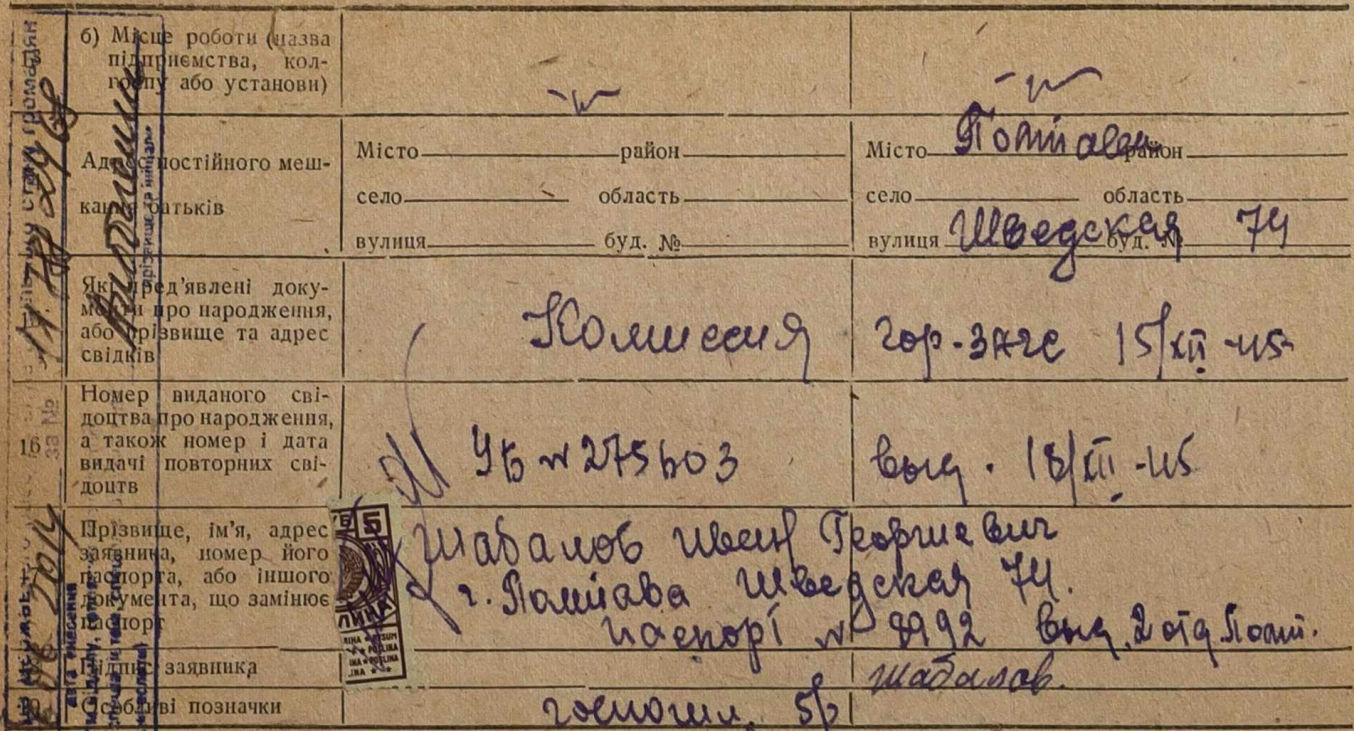 б) Місце роботи (назва
підприємства, кол-
госпу або установи)
Адрес постійного меш-
кання батьків
Місто район
село область
вулиця буд. №
Місто Полтава район
село область
вулиця Шведская буд. № 74
Які пред'явлені доку-
менти про народження,
або прізвище та адрес
свідків
Комиссия гор. загс 15/XII-45
16 Номер виданого сві-
доцтва про народження,
а також номер і дата
видачі повторних сві-
доцтв
УБ № 275603 выд. 18/XII-45
Прізвище, ім'я, адрес
заявника, номер його
паспорта, або іншого
документа, що замінює
паспорт
Шабалов Иван Георгиевич
г. Полтава Шведская 74.
паспорт № выд. 2 отд. Полт.
Підпис заявника Шабалов.
Особливі позначки госпошл. 5р
за №
прізвище та ініціали
5